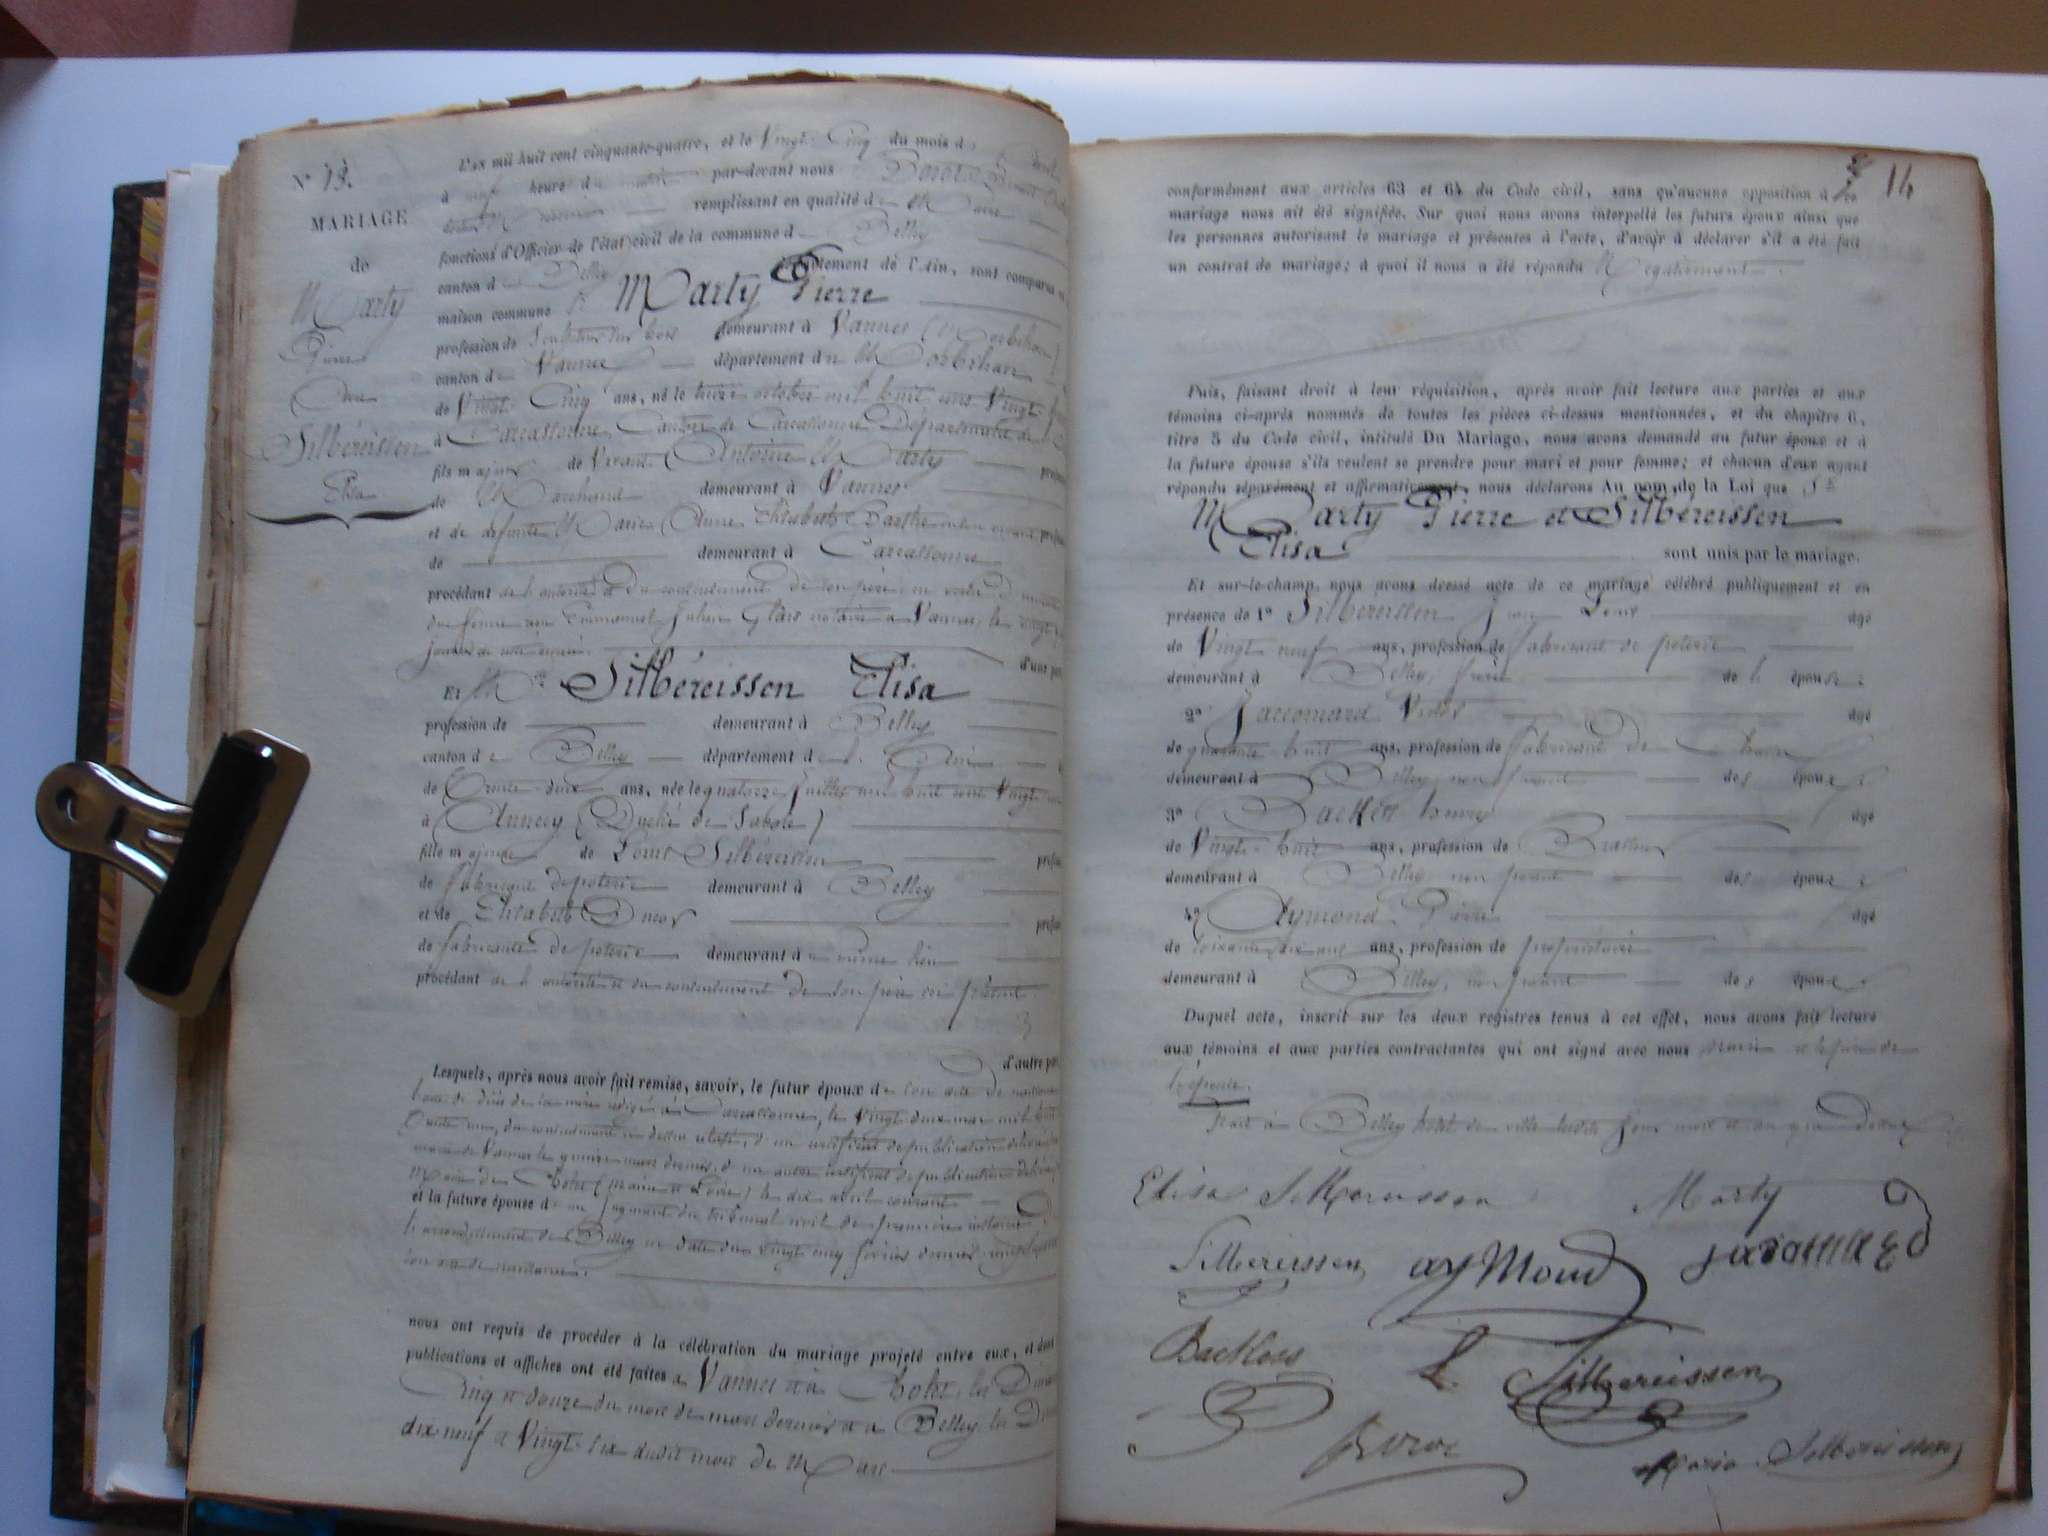 N° 13.
MARIAGE
de
Marty
Pierre
Silbéreissen
Elisa
L'an mil huit cent cinquante-quatre, et le Vingt-Cinq du mois d
à neuf heure du matin par-devant nous
remplissant en qualité de Maire
fonctions d'Officier de l'état civil de la commune de Belley
canton de Belley département de l'Ain, sont comparus
maison commune Marty Pierre
profession de Sculpteur sur bois demeurant à Vannes (Morbihan)
canton de Vannes département du Morbihan
de Vingt-Cinq ans, né le treize octobre mil huit cent Vingt
à Carcassonne, Canton de Carcassonne Département de
fils majeur de Vivant Antoine Marty
de Marchand demeurant à Vannes
et de défunte Marie Anne Elisabeth Barthe
de demeurant à Carcassonne
procédant de l'autorité et du consentement de son père en vertu d
Emmanuel Julien Glais notaire à Vannes, le vingt
d'une part
Et Silbéreissen Elisa
profession de demeurant à Belley
canton de Belley département de l'Ain
de Trente-deux ans, née le quatorze Juillet mil huit cent Vingt
à Annecy (Duché de Savoie)
fille majeure de Louis Silbéreissen
de fabrique de poterie demeurant à Belley
et de Elisabeth
de fabricante de poterie demeurant à même lieu
procédant de l'autorité et du consentement de son père ici présent
d'autre part
Lesquels, après nous avoir fait remise, savoir, le futur époux de son acte de naissance
l'acte de décès de sa mère rédigé à Carcassonne, le Vingt deux mai mil huit
Trente un, du consentement ci dessus relaté, d'un certificat de publication délivré
maire de Vannes le quinze mars dernier, d'un autre certificat de publication délivré
Maire de Cholet (Maine et Loire) le dix avril courant
et la future épouse d'un jugement du tribunal civil de première instance
l'arrondissement de Belley en date du vingt cinq février dernier
son acte de naissance.
nous ont requis de procéder à la célébration du mariage projeté entre eux, et dont
publications et affiches ont été faites à Vannes et à Cholet, les Dim
Cinq et douze du mois de mars dernier et à Belley les D
dix-neuf et Vingt-six dudit mois de Mars
14
conformément aux articles 63 et 64 du Code civil, sans qu'aucune opposition à ce
mariage nous ait été signifiée. Sur quoi nous avons interpellé les futurs époux ainsi que
les personnes autorisant le mariage et présentes à l'acte, d'avoir à déclarer s'il a été fait
un contrat de mariage; à quoi il nous a été répondu Négativement.
Puis, faisant droit à leur réquisition, après avoir fait lecture aux parties et aux
témoins ci-après nommés de toutes les pièces ci-dessus mentionnées, et du chapitre 6,
titre 5 du Code civil, intitulé Du Mariage, nous avons demandé au futur époux et à
la future épouse s'ils veulent se prendre pour mari et pour femme; et chacun d'eux ayant
répondu séparément et affirmativement, nous déclarons Au nom de la Loi que
Marty Pierre et Silbéreissen
Elisa sont unis par le mariage.
Et sur-le-champ, nous avons dressé acte de ce mariage célébré publiquement et en
présence de 1° Silbéreissen Jean Louis âgé
de Vingt neuf ans, profession de fabricant de poterie
demeurant à Belley, frère de l'épouse
2° Jaccomard Victor âgé
de quarante huit ans, profession de fabricant de
demeurant à Belley, non parent des époux
3° Henry âgé
de Vingt-huit ans, profession de Brasseur
demeurant à Belley, non parent des époux
4° Aymond Pierre âgé
de soixante six ans ans, profession de propriétaire
demeurant à Belley, non parent des époux
Duquel acte, inscrit sur les deux registres tenus à cet effet, nous avons fait lecture
aux témoins et aux parties contractantes qui ont signé avec nous maire et le père de
l'épouse.
Fait à Belley hôtel de ville lesdits jour mois et an que dessus
Elisa Silbereissen Marty
Silbereissen aymond
Silbereissen
Maria Silbereissen